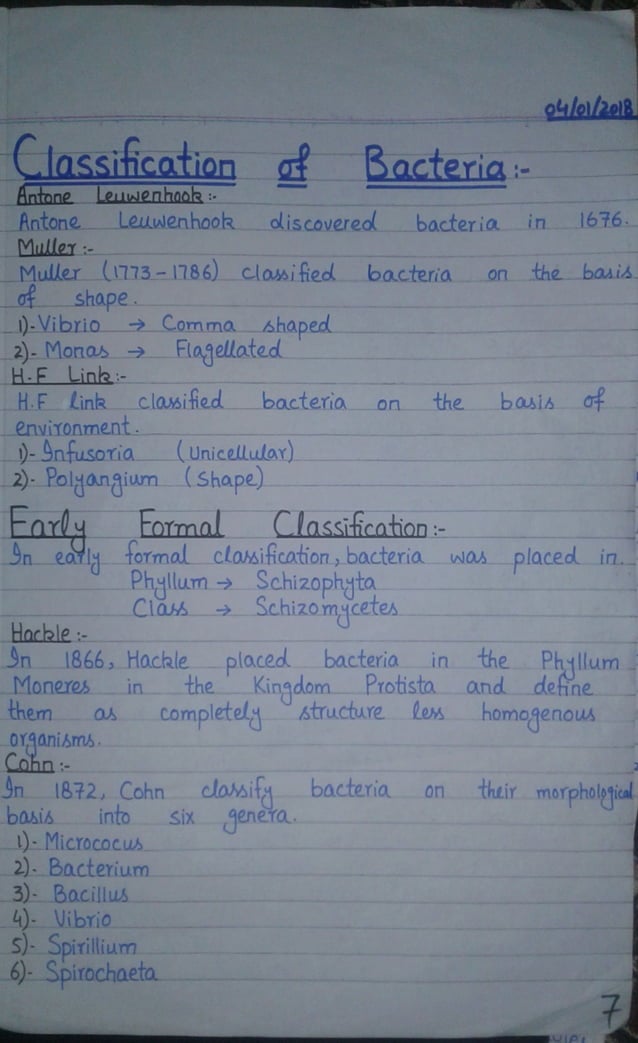 04/01/2018
Classification of Bacteria:-
Antone Leuwenhook:-
Antone Leuwenhook discovered bacteria in 1676.
Muller:-
Muller (1773-1786) classified bacteria on the basis
of shape.
1)- Vibrio → Comma shaped
2)- Monas → Flagellated
H.F Link:-
H.F link classified bacteria on the basis of
environment.
1)- Infusoria (Unicellular)
2)- Polyangium (Shape)
Early Formal Classification:-
In early formal classification, bacteria was placed in.
Phyllum → Schizophyta
Class → Schizomycetes
Hackle:-
In 1866, Hackle placed bacteria in the Phyllum
Moneres in the Kingdom Protista and define
them as completely structure less homogenous
organisms.
Cohn:-
In 1872, Cohn classify bacteria on their morphological
basis into six genera.
1)- Micrococus
2)- Bacterium
3)- Bacillus
4)- Vibrio
5)- Spirillium
6)- Spirochaeta
7